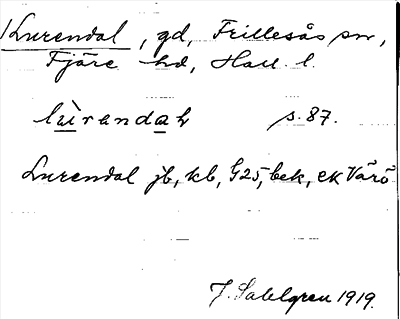 Lurendal, gd, Frillesås sn,
Fjäre hd, Hall. l.
lùrendaɫ s. 87.
Lurendal jb, kb, G25, bek, ek Värö
J. Sahlgren 1919.